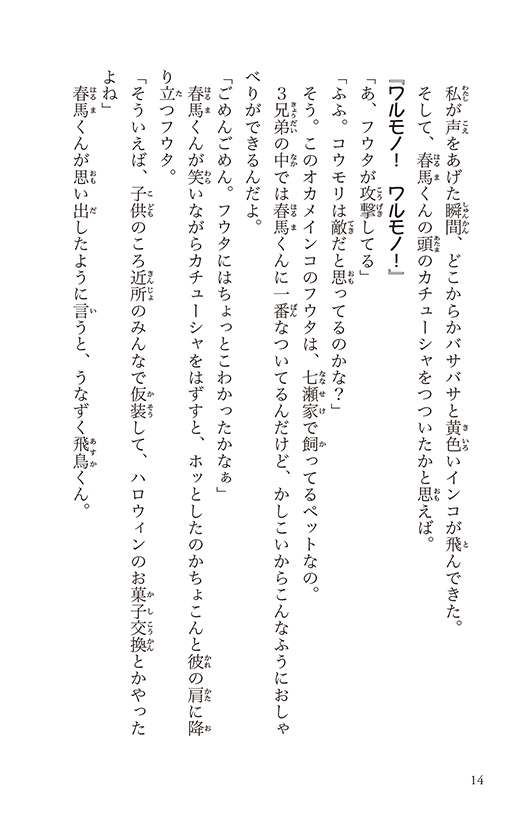 私が声をあげた瞬間、どこからかバサバサと黄色いインコが飛んできた。
そして、春馬くんの頭のカチューシャをつついたかと思えば。
『ワルモノ！　ワルモノ！』
「あ、フウタが攻撃してる」
「ふふ。コウモリは敵だと思ってるのかな？」
そう。このオカメインコのフウタは、七瀬家で飼ってるペットなの。
３兄弟の中では春馬くんに一番なついてるんだけど、かしこいからこんなふうにおしゃ
べりができるんだよ。
「ごめんごめん。フウタにはちょっとこわかったかなぁ」
春馬くんが笑いながらカチューシャをはずすと、ホッとしたのかちょこんと彼の肩に降
り立つフウタ。
「そういえば、子供のころ近所のみんなで仮装して、ハロウィンのお菓子交換とかやった
よね」
春馬くんが思い出したように言うと、うなずく飛鳥くん。
14